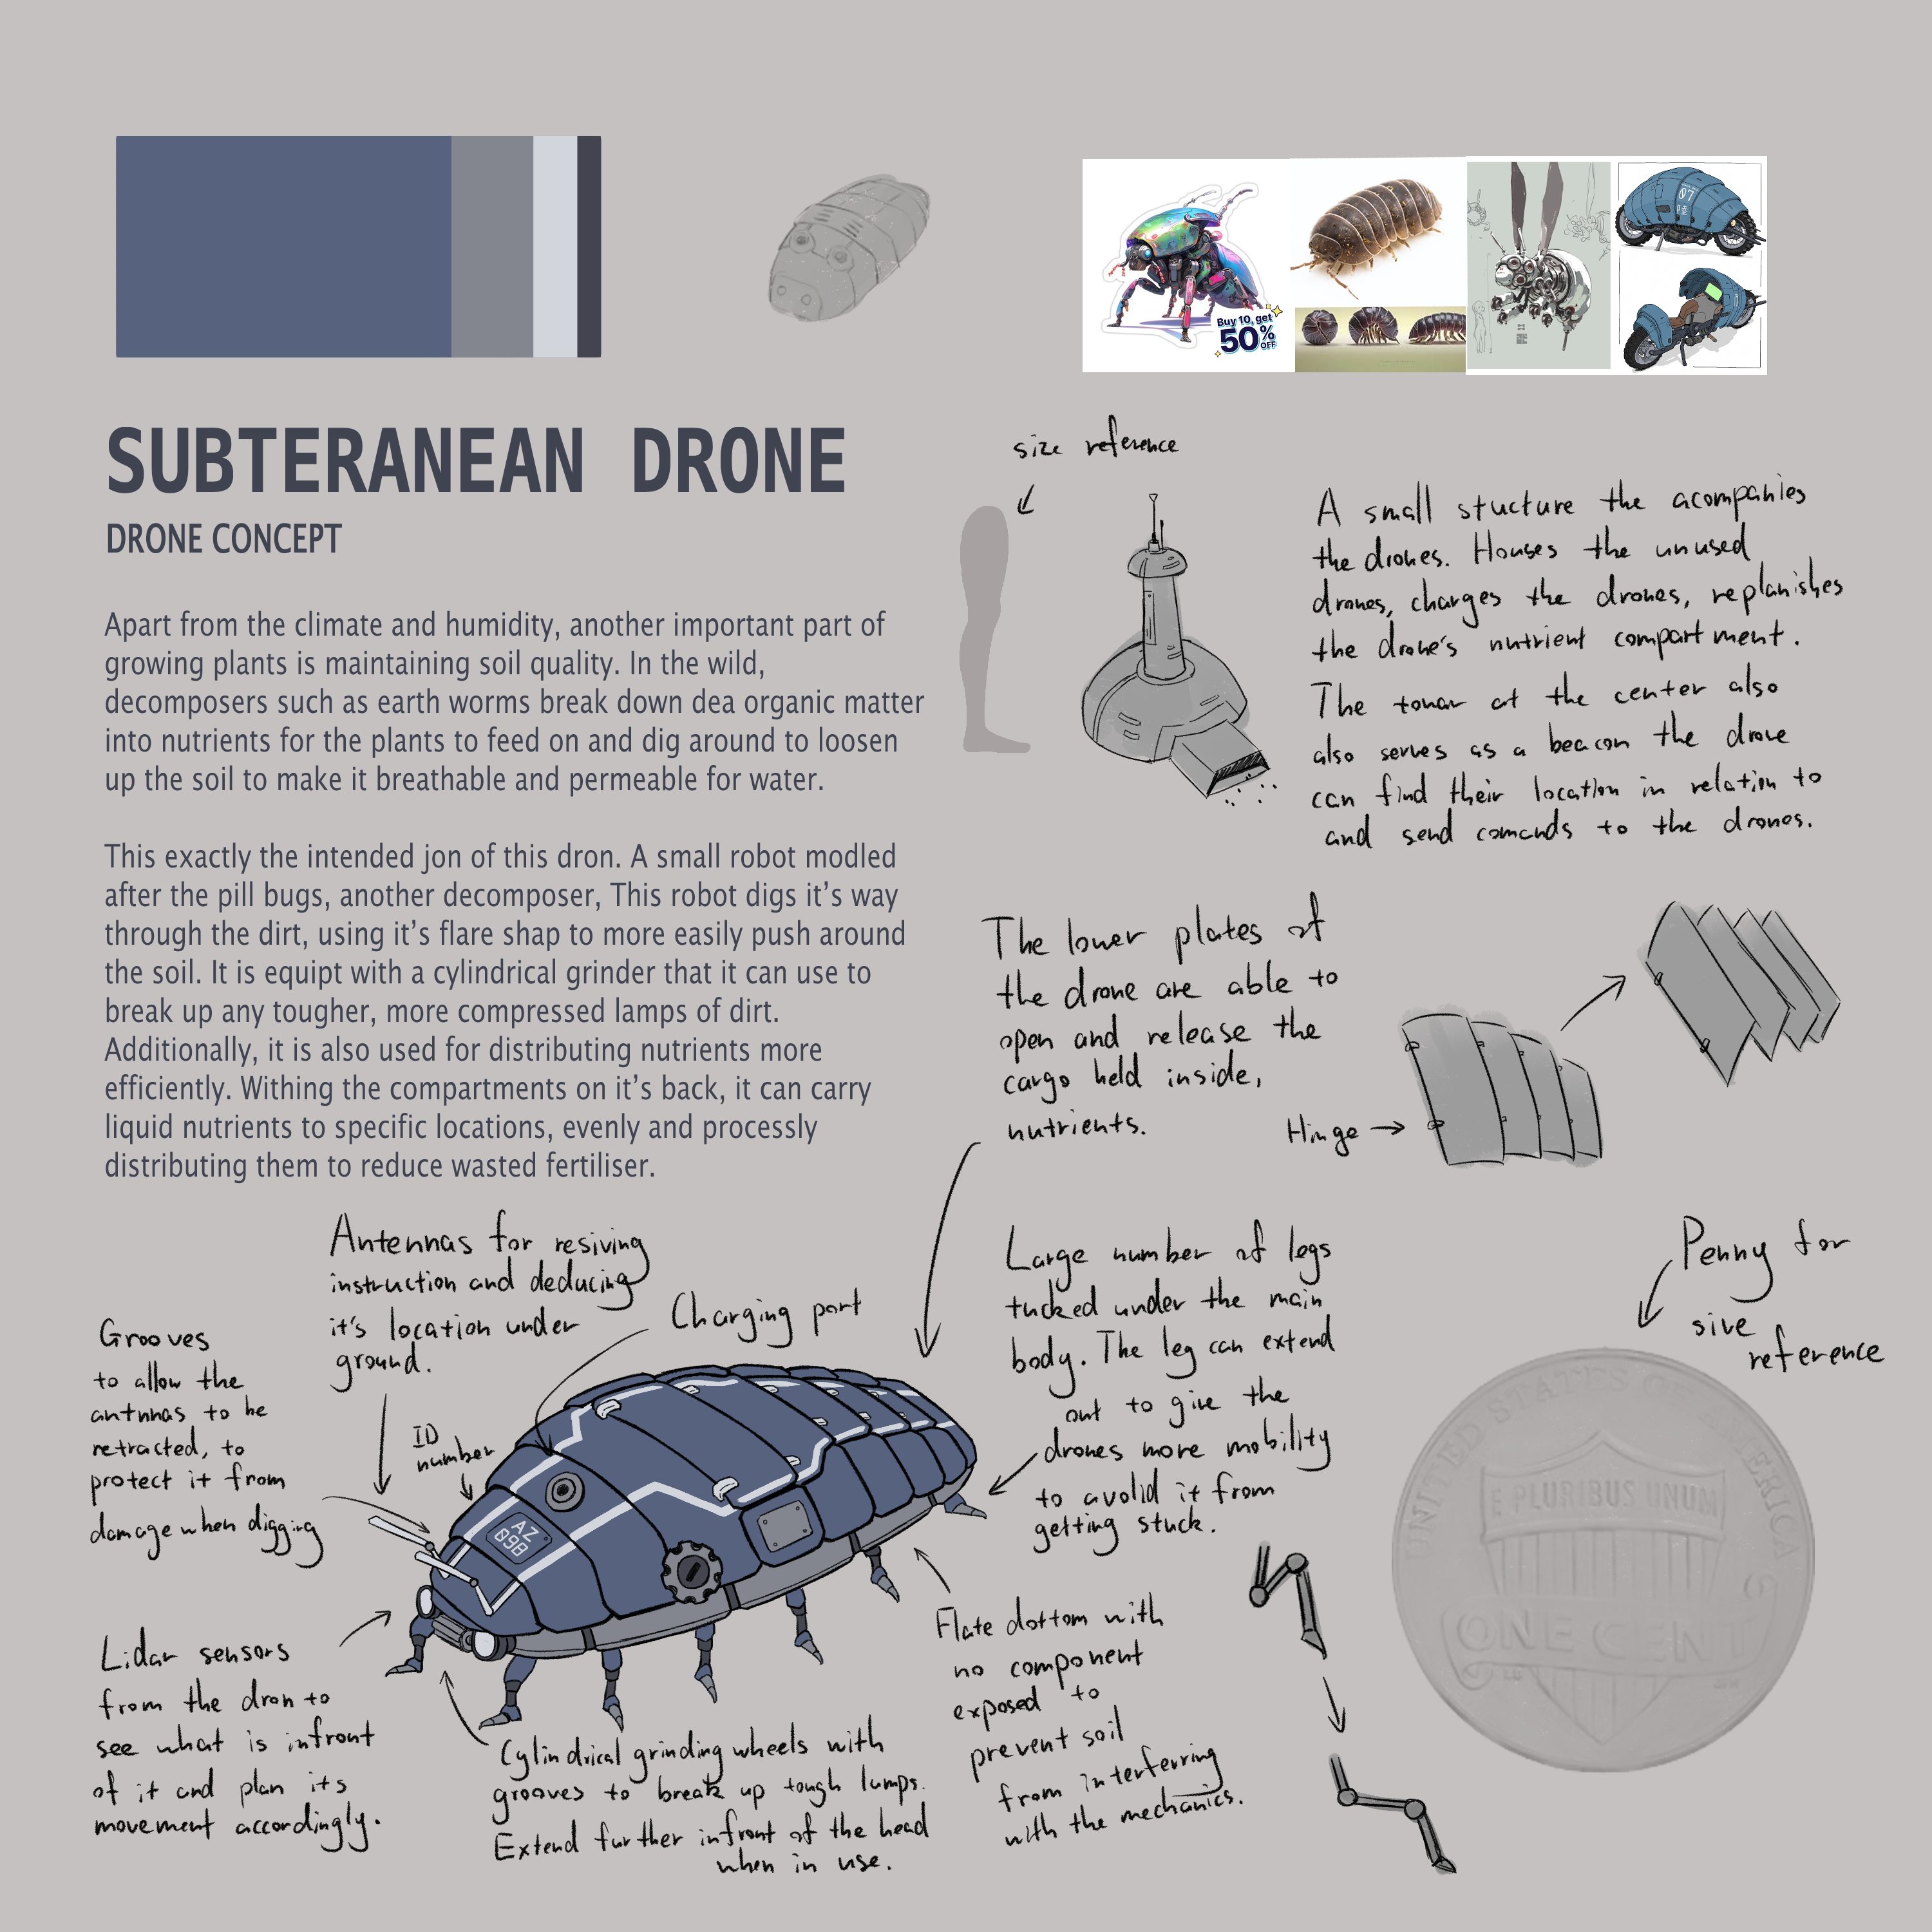 Buy 10, get
50%
OFF
07
SUBTERANEAN DRONE
DRONE CONCEPT
Apart from the climate and humidity, another important part of
growing plants is maintaining soil quality. In the wild,
decomposers such as earth worms break down dea organic matter
into nutrients for the plants to feed on and dig around to loosen
up the soil to make it breathable and permeable for water.
This exactly the intended jon of this dron. A small robot modled
after the pill bugs, another decomposer, This robot digs it's way
through the dirt, using it's flare shap to more easily push around
the soil. It is equipt with a cylindrical grinder that it can use to
break up any tougher, more compressed lamps of dirt.
Additionally, it is also used for distributing nutrients more
efficiently. Withing the compartments on it's back, it can carry
liquid nutrients to specific locations, evenly and processly
distributing them to reduce wasted fertiliser.
size reference
A small stucture the acompanies
the drones. Houses the unused
drones, charges the drones, replanishes
the drone's nutrient compartment.
The towar at the center also
also serves as a beacon the drone
can find their location in relation to
and send comands to the drones.
The lower plates of
the drone are able to
open and release the
cargo held inside,
nutrients.
Hinge
Antennas for resiving
instruction and deducing
it's location under
ground.
Charging port
Grooves
to allow the
antnnas to be
retracted, to
protect it from
damage when digging
ID
number
AZ
098
Large number of legs
tucked under the main
body. The leg can extend
out to give the
drones more mobility
to avolid it from
getting stuck.
Penny for
sive
reference
UNITED STATES OF AMERICA
E PLURIBUS UNUM
ONE CENT
Lidar sensors
from the dron to
see what is infront
of it and plan its
movement accordingly.
Cylindrical grinding wheels with
grooves to break up tough lumps.
Extend further infront of the head
when in use.
Flate dottom with
no component
exposed to
prevent soil
from interferring
with the mechanics.